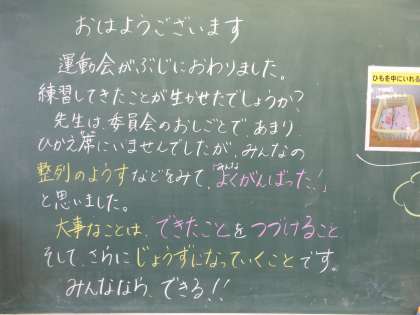 おはようございます
運動会がぶじにおわりました。
練習してきたことが生かせたでしょうか?
先生は、委員会のおしごとで、あまり
ひかえ席にいませんでしたが、みんなの
整列のようすなどをみて、「よくがんばった!」
と思いました。
大事なことは、できたことをつづけること
そして、さらにじょうずになっていくことです。
みんななら、できる!!
ひもを中にいれる